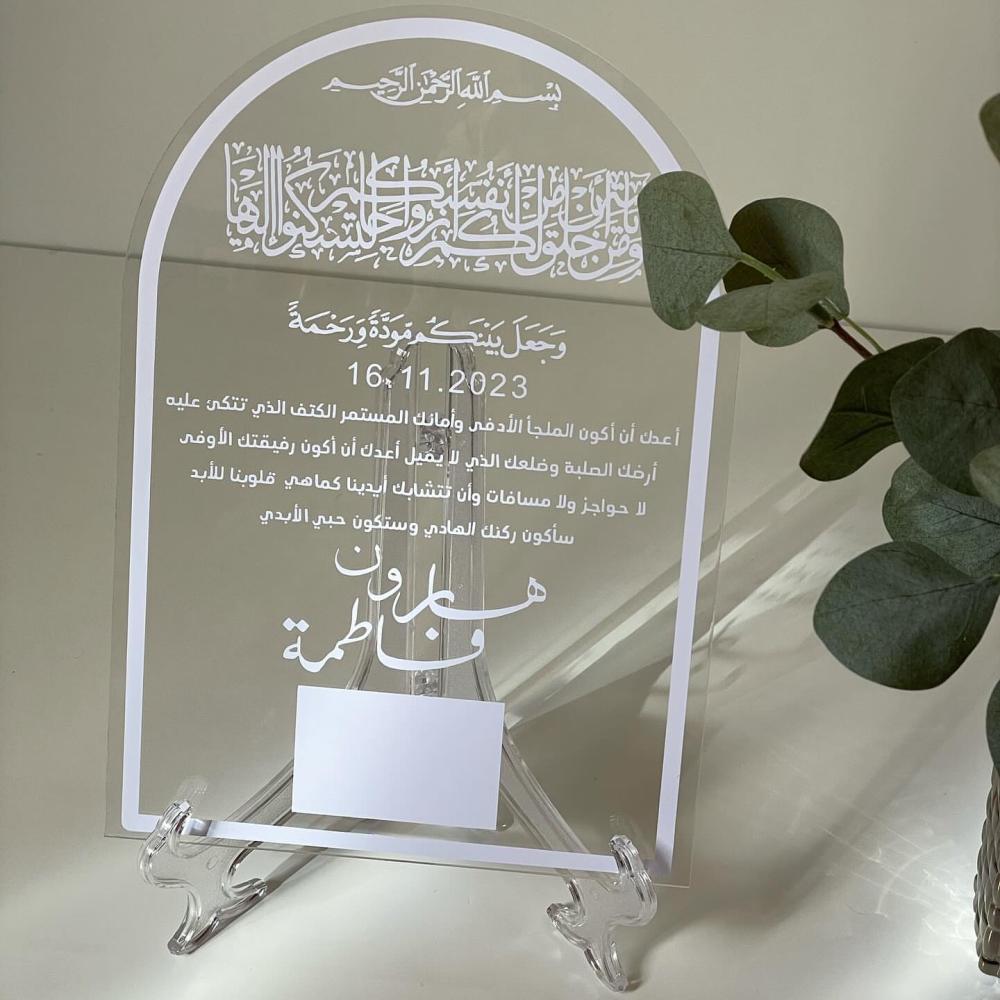 بِسْمِ اللَّهِ الرَّحْمَٰنِ الرَّحِيمِ
وَمِنْ آيَاتِهِ أَنْ خَلَقَ لَكُمْ مِنْ أَنْفُسِكُمْ أَزْوَاجًا لِتَسْكُنُوا إِلَيْهَا
وَجَعَلَ بَيْنَكُم مَّوَدَّةً وَرَحْمَةً
16.11.2023
أعدك أن أكون الملجأ الأدفى وأمانك المستمر الكتف الذي تتكئ عليه
أرضك الصلبة وضلعك الذي لا يميل أعدك أن أكون رفيقتك الأوفى
لا حواجز ولا مسافات وأن تتشابك أيدينا كماهي قلوبنا للأبد
سأكون ركنك الهادي وستكون حبي الأبدي
هارون
فاطمة